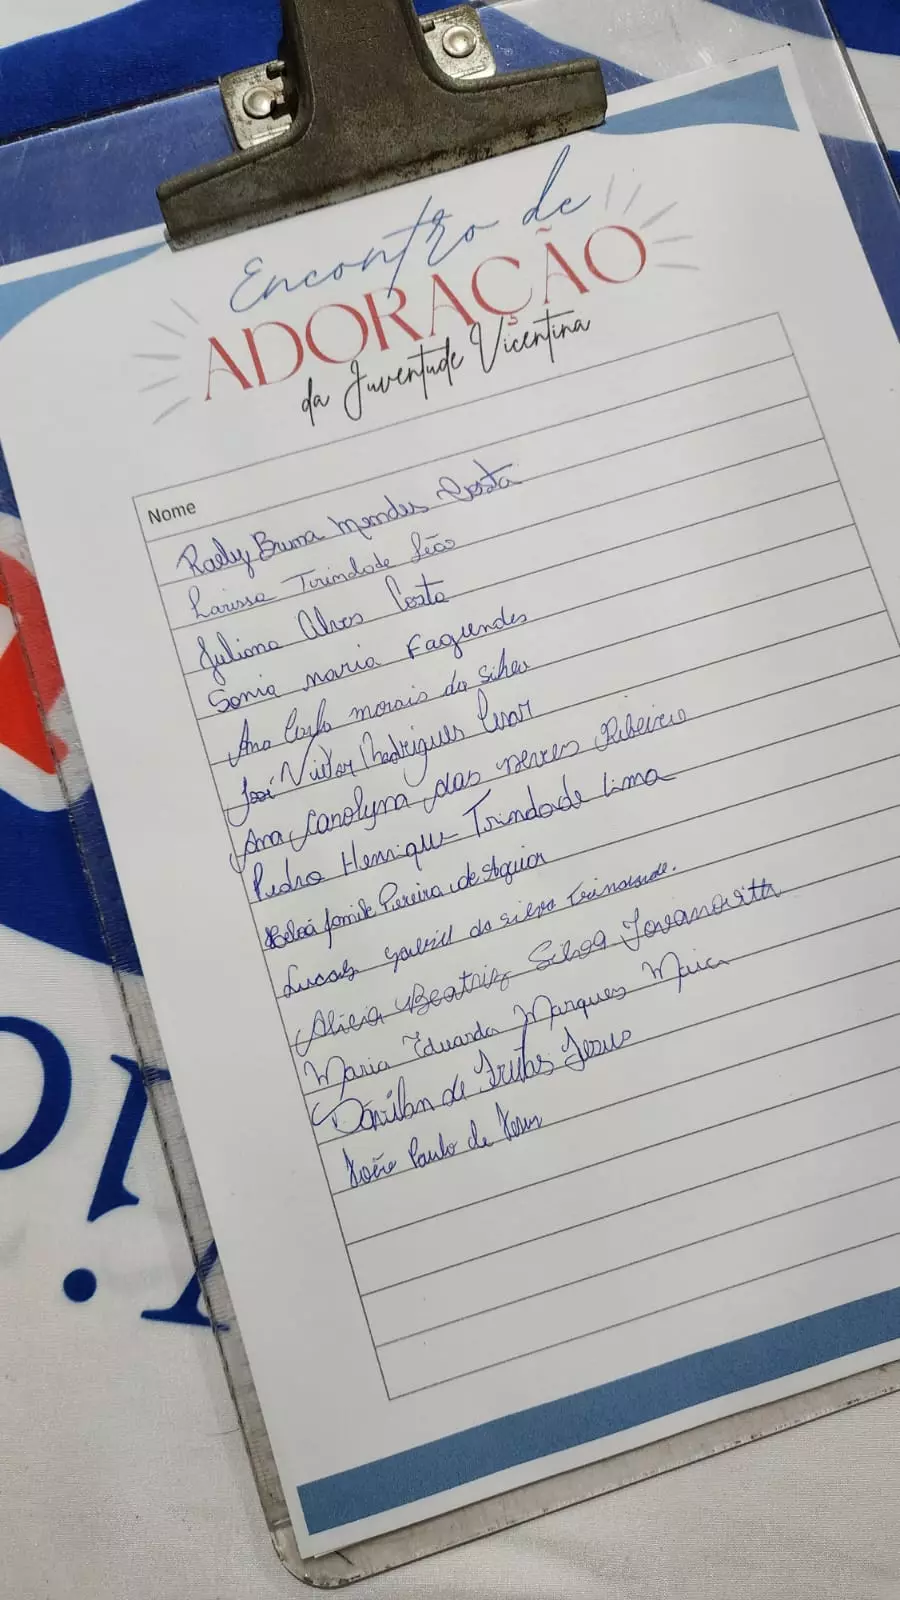 Encontro de
ADORAÇÃO
da Juventude Vicentina
Nome
Bruna Mendes Costa
Larissa Trindade Leão
Juliana Alves Costa
Sonia Maria Fagundes
Ana morais da Silva
José Victor Rodrigues Cesar
Ana Carolyna das neves Ribeiro
Pedro Henrique Trindade Lima
Pereira de Aguiar
Lucas Gabriell da Silva Trindade.
Alicia Beatriz Silva Jovanovitth
Maria Eduarda Marques Maia
de Freitas Jesus
João Paulo de Jesus